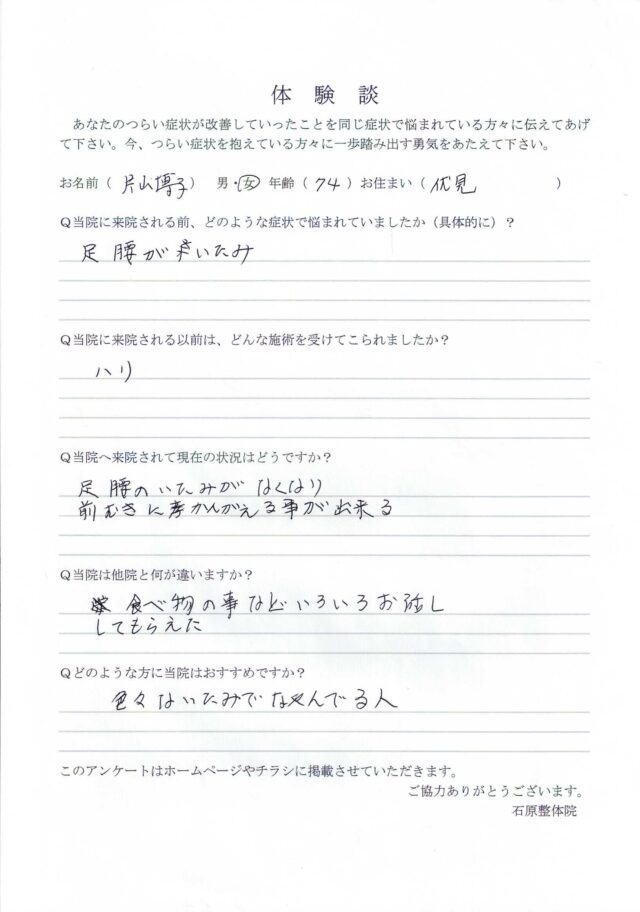 体 験 談
あなたのつらい症状が改善していったことを同じ症状で悩まれている方々に伝えてあげ
て下さい。今、つらい症状を抱えている方々に一歩踏み出す勇気をあたえて下さい。
お名前（ 片山博子 ） 男・女 年齢（ 74 ）お住まい（ 伏見 ）
Q当院に来院される前、どのような症状で悩まれていましたか（具体的に）？
足 腰が いたみ
Q当院に来院される以前は、どんな施術を受けてこられましたか？
ハリ
Q当院へ来院されて現在の状況はどうですか？
足 腰の いたみが なくなり
前むきに かんがえる事が出来る
Q当院は他院と何が違いますか？
食べ物の事など いろいろお話し
してもらえた
Qどのような方に当院はおすすめですか？
色々ないたみでなやんでる人
このアンケートはホームページやチラシに掲載させていただきます。
ご協力ありがとうございます。
石原整体院